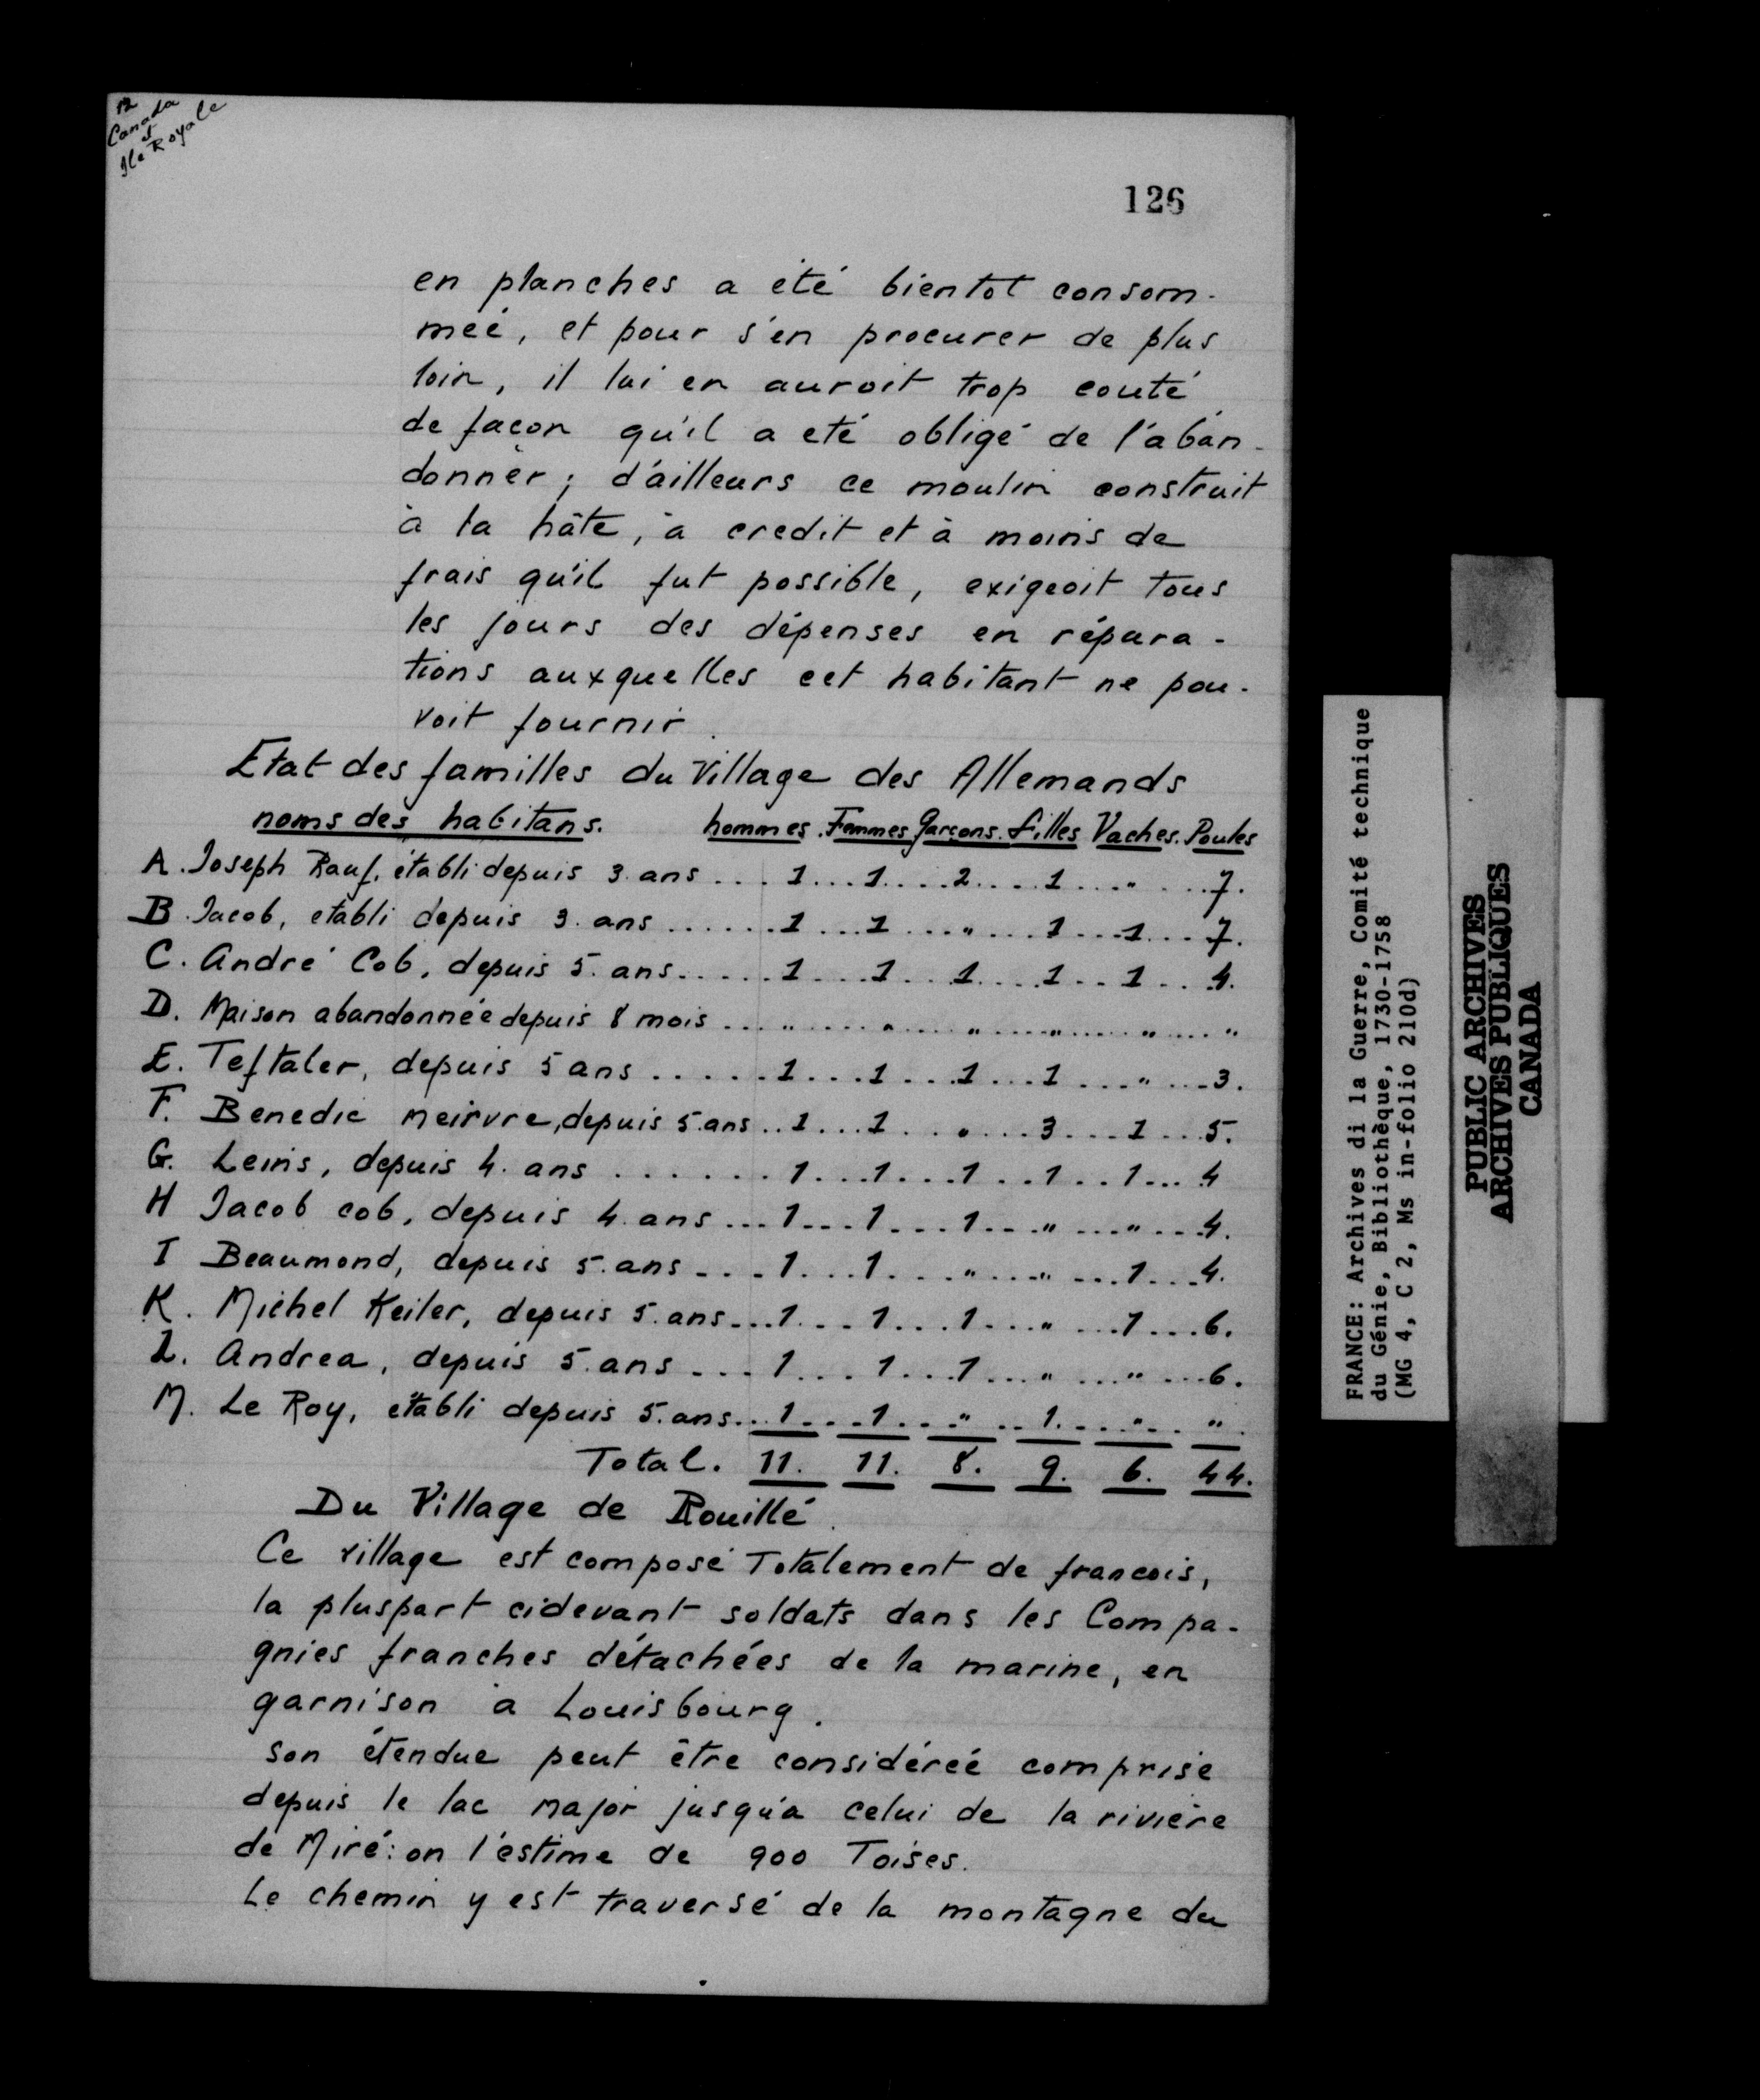 12
Canada
et
Ile Royale
126
en planches a été bientot consom-
meé, et pour s'en procurer de plus
loin, il lui en auroit trop couté
de façon qu'il a eté obligé de l'aban-
donner; d'ailleurs ce moulin construit
à la hâte, à credit et à moins de
frais qu'il fut possible, exigeoit tous
les jours des dépenses en répara-
tions auxquelles cet habitant ne pou-
voit fournir.
Etat des familles du Village des Allemands
noms des habitans. hommes. Femmes Garçons. filles Vaches. Poules
A. Joseph Rauf, établi depuis 3. ans .... 1 ... 1 .... 2 .... 1 .... " .... 7.
B. Jacob, etabli depuis 3. ans ...... 1 ... 1 .... " .... 1 ... 1 ... 7.
C. André Cob, depuis 5. ans ..... 1 .... 1 ... 1 .... 1 ... 1 ... 4.
D. Maison abandonnée depuis 8 mois ... " .... " .... " .... " .... " .... "
E. Teftaler, depuis 5 ans ..... 1 ... 1 ... 1 ... 1 .... " .... 3.
F. Benedic meirvre, depuis 5. ans .. 1 ... 1 .... " .... 3 .... 1 ... 5.
G. Leins, depuis 4. ans ....... 1 ... 1 ... 1 ... 1 ... 1 ... 4
H Jacob cob, depuis 4. ans ... 1 ... 1 ... 1 ... " .... " ... 4.
I Beaumond, depuis 5. ans .... 1 ... 1 .... " .... " .... 1 ... 4.
K. Michel Keiler, depuis 5. ans ... 1 ... 1 ... 1 .... " .... 1 ... 6.
L. Andrea, depuis 5. ans .... 1 ... 1 ... 1 .... " .... " .... 6.
M. Le Roy, établi depuis 5. ans ... 1 ... 1 ... " ... 1. ... " ... "
Total. 11. 11. 8. 9. 6. 44.
Du Village de Rouillé.
Ce village est composé Totalement de francois,
la pluspart cidevant soldats dans les Compa-
gnies franches détachées de la marine, en
garnison a Louisbourg.
son étendue peut être considéreé comprise
depuis le lac major jusqu'a celui de la rivière
de Miré: on l'estime de 900 Toises.
Le chemin y est traversé de la montagne du
FRANCE: Archives di la Guerre, Comité technique
du Génie, Bibliothèque, 1730-1758
(MG 4, C 2, Ms in-folio 210d)
PUBLIC ARCHIVES
ARCHIVES PUBLIQUES
CANADA